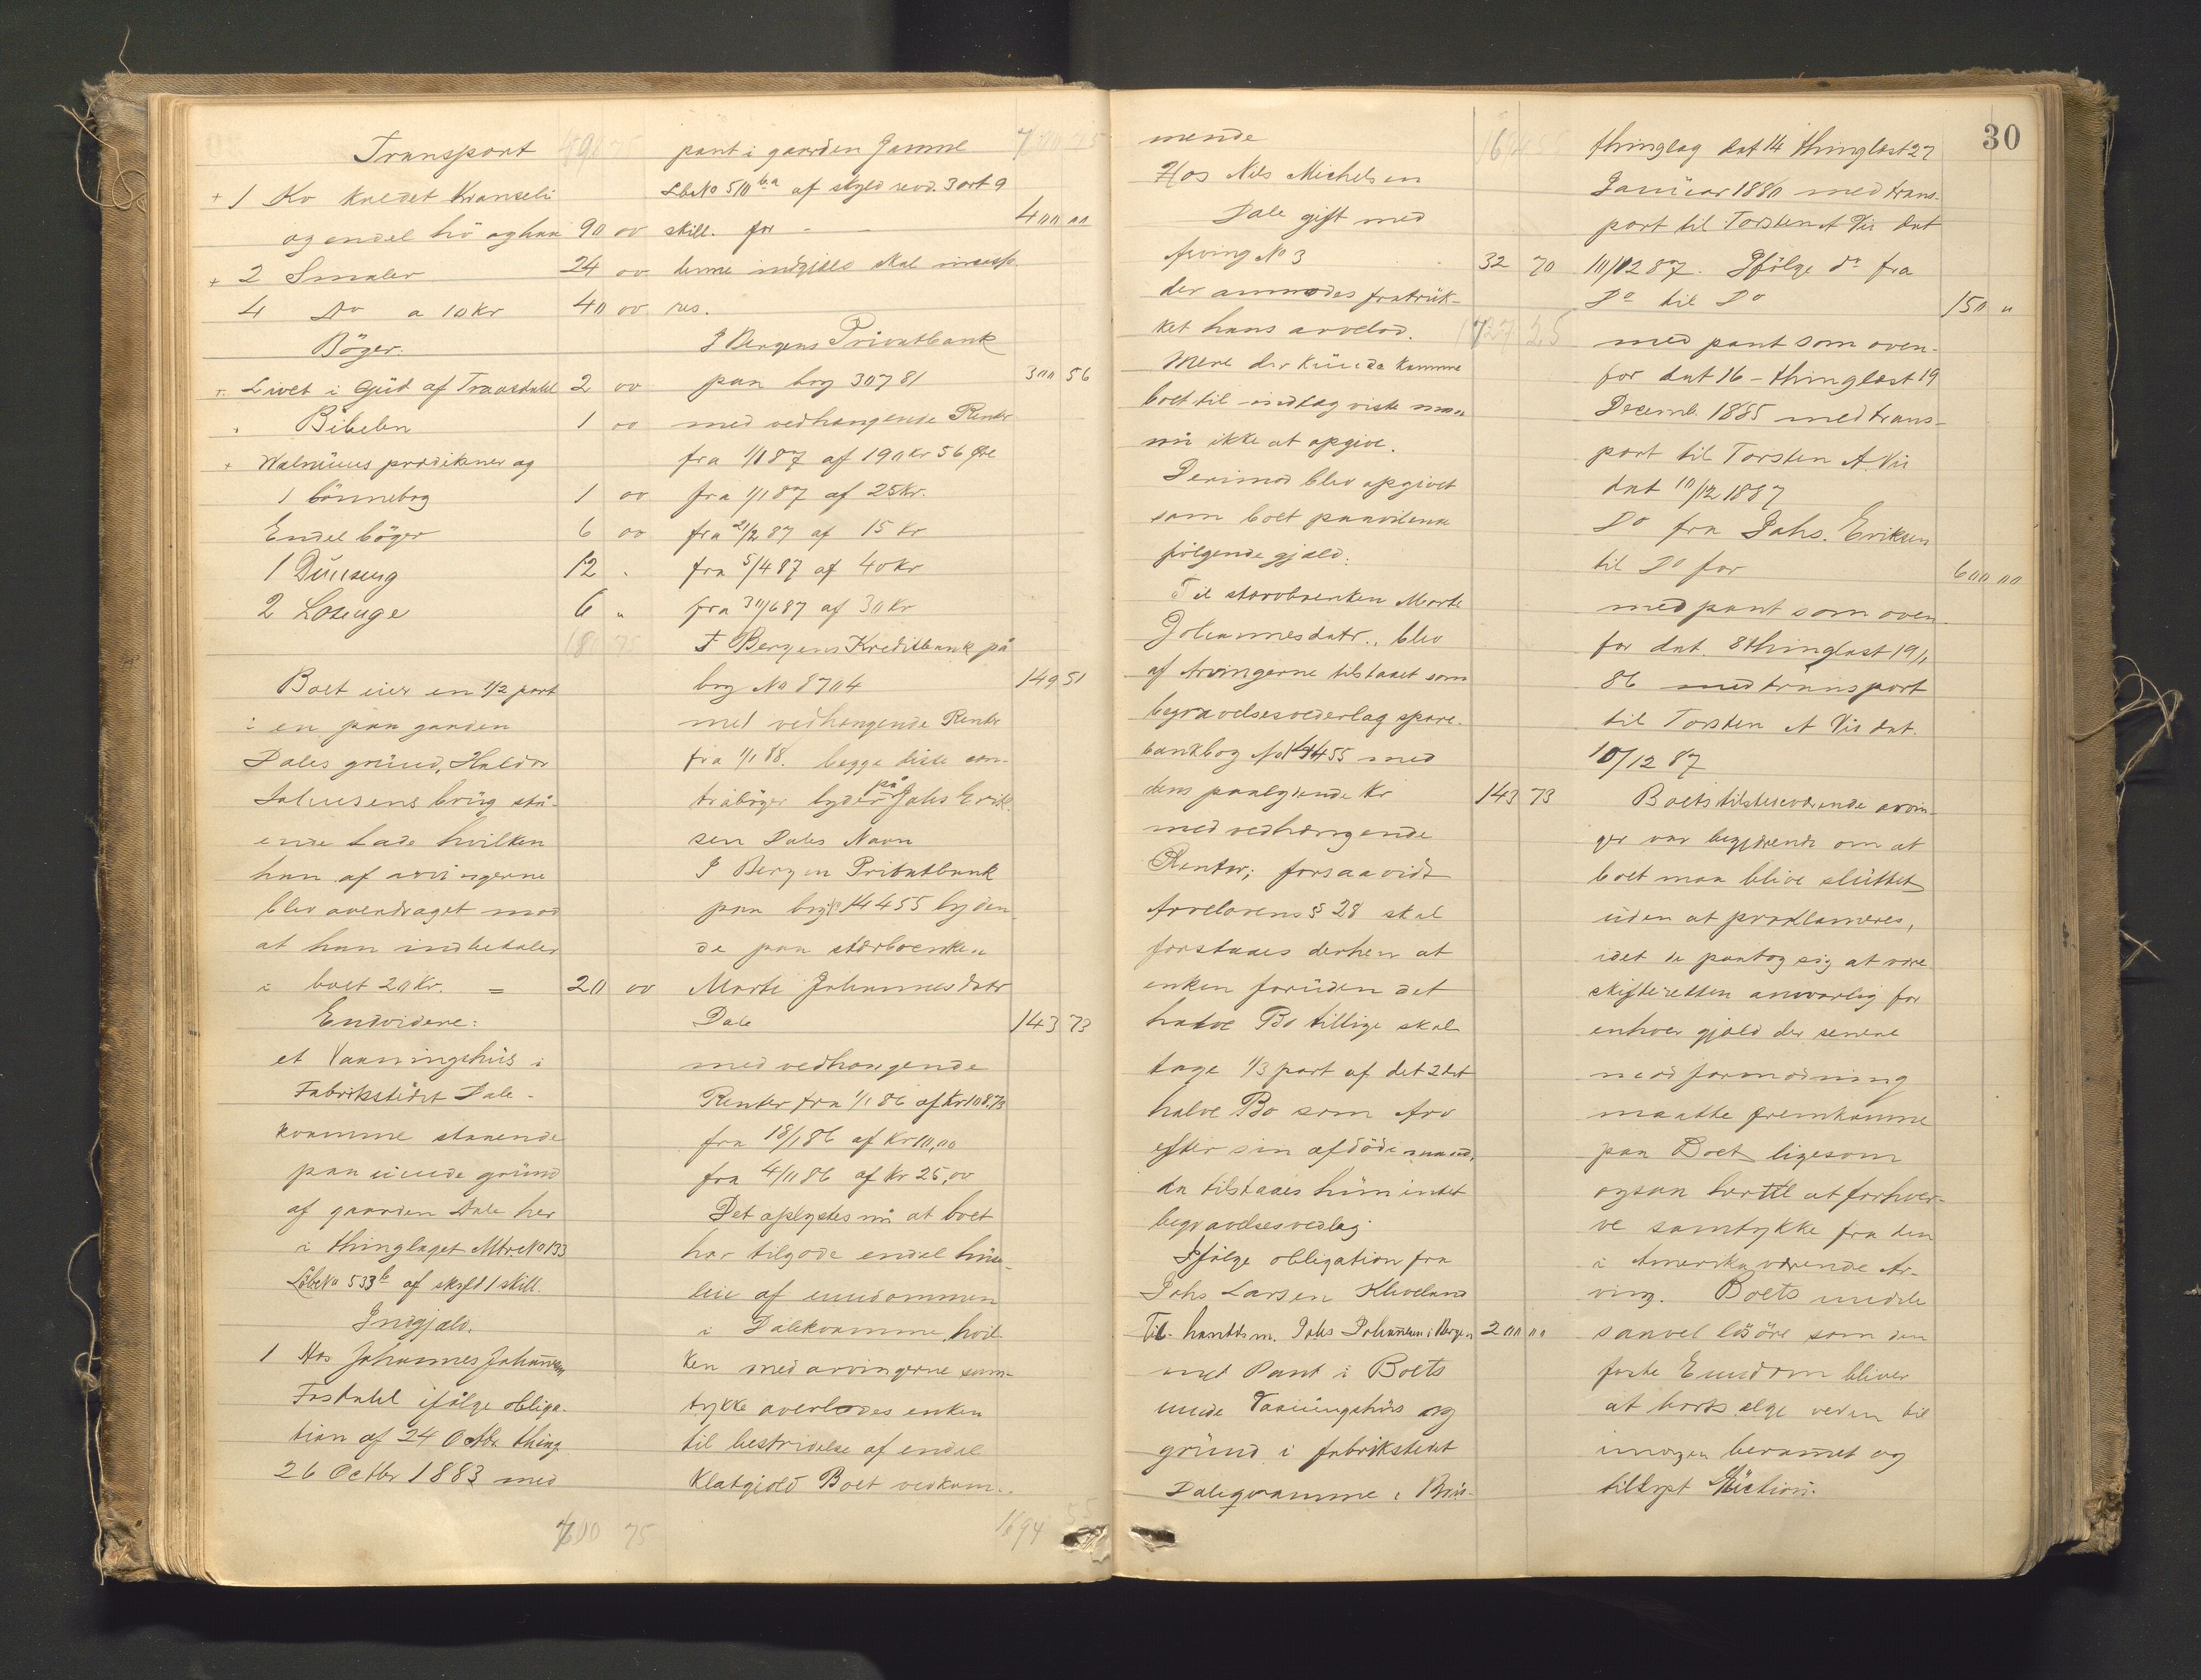 Transport
+ 1 Ko kaldet Kranseli
og endel hö og ham 90 00
+ 2 Smaler 24 00
4 Do a 10 Kr 40 00
Böger.
+ Livet i Gud af Traasdahl 2 00
Bibelen 1 00
+ prædikener og
1 bönnebog 1 00
Endel böger 6 00
1 Dunseng 12 "
2 Losenge 6 "
Boet eier en 1/2 part
i en paa gaarden
Dales grund, Haldor
Johnsens brug stå-
ende Lade hvilken
han af arvingerne
blev overdraget mod
at han indbetaler
i boet 20 Kr. = 20 00
Endvidere:
et Vaaningshus i
Fabrikstedet Dale-
kvamme staaende
paa eiende grund
af gaarden Dale her
i thinglaget MtreNo 133
LöbeNo 533b af skyld 1 skill.
Indgjæld.
1 Hos Johannes Johannesen
Fosdahl ifölge obliga-
tion af 24 Octbr. thing.
26 Octbr 1883 med
700 75
pant i gaarden Jamne
LbNo 510 ba af skyld revd. 3 ort 9
skill. for - - 400 00
denne indgjæld skal
res.
I Bergens Privatbank
paa bog 30781 300 56
med vedhængende Renter
fra 1/1 87 af 190 kr 56 Öre
fra 1/1 87 af 25 Kr.
fra 21/2 87 af 15 Kr
fra 5/4 87 af 40 Kr
fra 30/6 87 af 30 Kr
I Bergens Kreditbank på
bog No 8704 149 51
med vedhængende Renter
fra 1/1 88. begge disse con-
traböger lyder på Johs Erik-
sen Dales Navn
I Bergen Privatbank
paa bog No 14455 lyden-
de paa stervboenken
Marte Johannesdatr
Dale 143 73
med vedhængende
Renter fra 1/1 86 af Kr 108,73
fra 18/1 86 af Kr 10,00
fra 4/11 86 af Kr 25,00
Det oplystes nu at boet
har tilgode endel huse-
leie af eiendommen
i Dalekvamme, hvil-
ken med arvingerne sam-
tykke overlodes enken
til bestridelse af endel
Klatgjæld Boet vedkom-
1694 55
mende
Hos Nils Michelsen
Dale gift med
Arving No 3 32 70
der anmodes fratruk-
ket hans arvelod.
Mere der kunde komme
boet til indtag viste man
nu ikke at opgive.
Derimod blev opgivet
som boet paahvilende
fölgende gjæld:
Til stervboenken Marte
Johannesdatr., blev
af Arvingerne tilstaaet som
begravelsesvederlag spare-
bankbog No 14455 med
dens paalydende Kr 143 73
med vedhængende
Renter; forsaavidt
Arvelovens § 28 skal
forstaaes derhen at
enken foruden det
halve Bo tillige skal
tage 1/3 part af det 2det
halve Bo som Arv
efter sin afdöde mand,
da tilstaaes hun intet
begravelsesvedlag.
Ifölge obligation fra
Johs Larsen Kleveland
til handtsm. Johs Johannesen i Bergen 200 00
med Pant i Boets
eiende Vaaningshus og
grund i fabrikstedet
Daleqvamme i Bru-
30
thinglag dat 14 thinglæst 27
Januar 1880 med trans-
port til Torsten A Vis dat
10/12 87. Ifölge do fra
Do til Do 150 "
med pant som oven-
for dat 16 - thinglæst 19
Decemb. 1885 med trans-
port til Torsten A Vis
dat 10/12 1887
Do fra Johs. Eriksen
til Do for 600 00
med pant som oven-
for dat. 8 thinglæst 19/1
86 med transport
til Torsten A Vis dat.
10/12 87
Boets tilstedeværende arvin-
ger var begjærende om at
boet maa blive sluttet
uden at proklameres,
idet de paatog sig at være
skifteretten ansvarlig for
enhver gjæld der senere
mod formodning
maatte fremkomme
paa Boet ligesom
ogsaa hertil at forhver-
ve samtykke fra den
i Amerika værende Ar-
ving. Boets eiendele
saavel lösöre som den
faste Eiendom bliver
at bortsælge ved en til
imorgen berammet og
tillyst Auction.